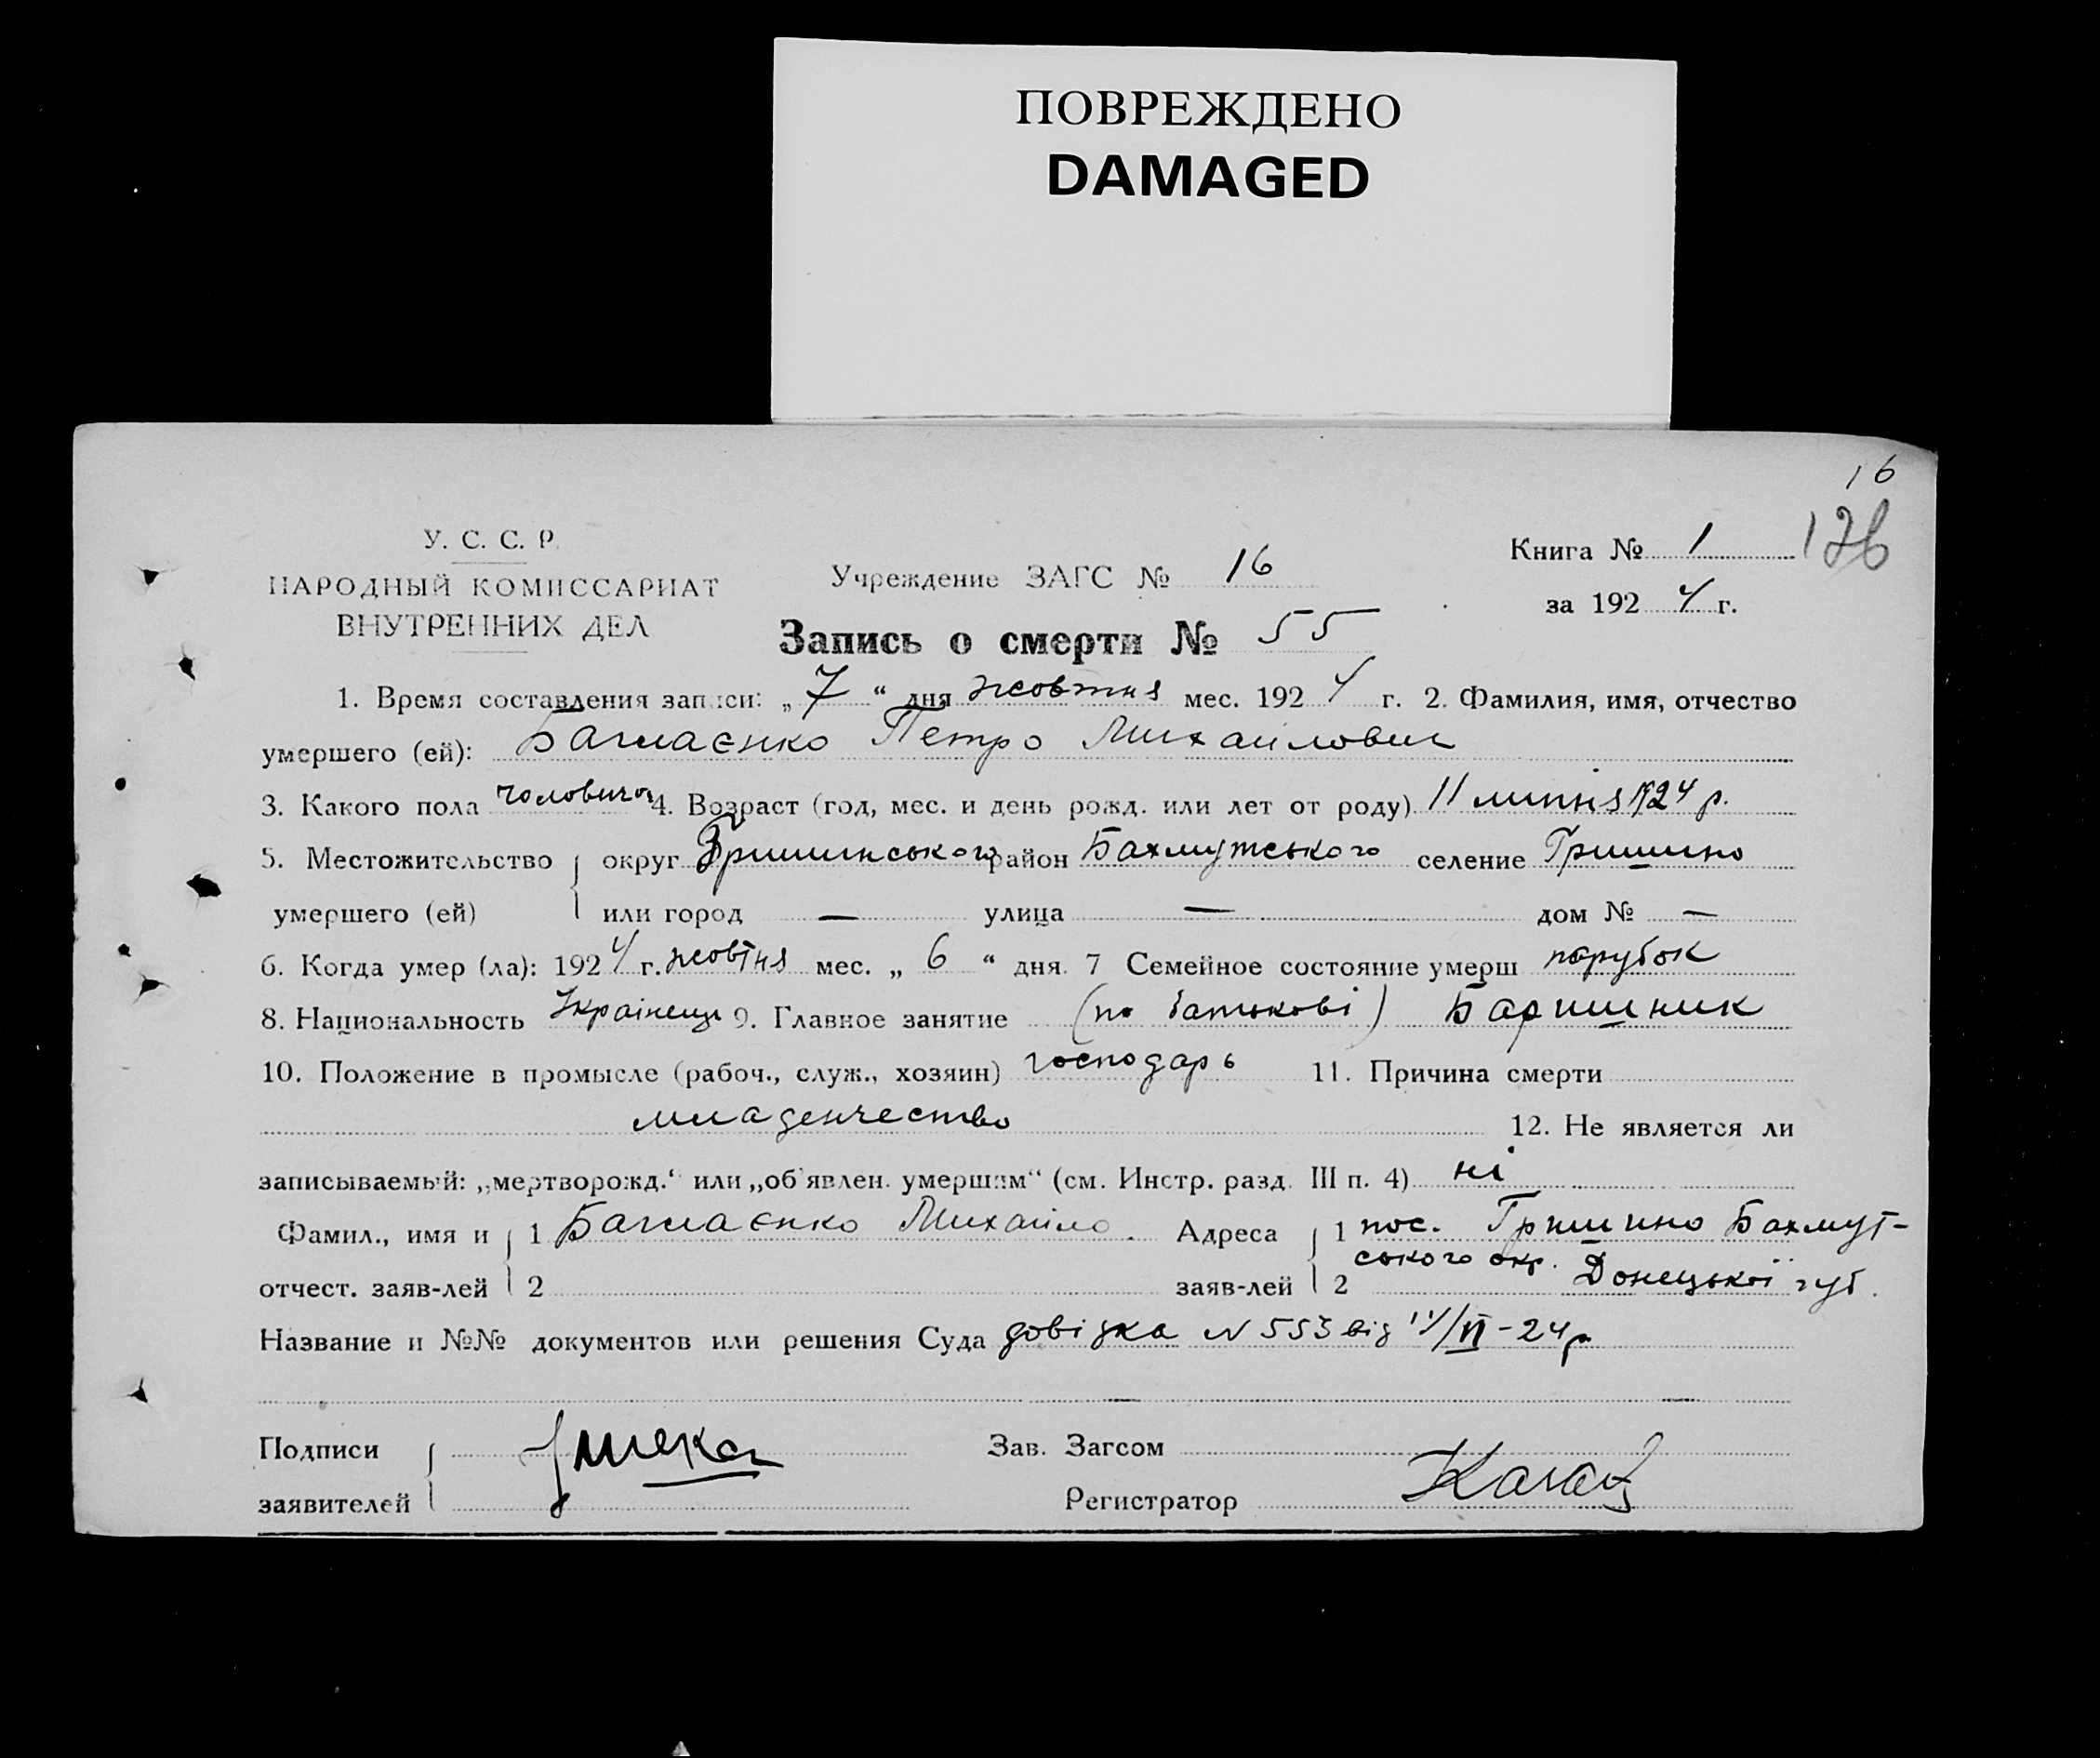 ПОВРЕЖДЕНО
DAMAGED
16
126
У. С. С. Р.
НАРОДНЫЙ КОМИССАРИАТ
ВНУТРЕННИХ ДЕЛ
Учреждение ЗАГС № 16
Книга № 1
за 1924 г.
Запись о смерти № 55
1. Время составления записи: „7“ дня жовтня мес. 1924 г. 2. Фамилия, имя, отчество
умершего (ей): Петро Михайлович
3. Какого пола чоловичої 4. Возраст (год, мес. и день рожд. или лет от роду) 11 липня 1924 р.
5. Местожительство округ Гришинського район Бахмутського селение Гришино
умершего (ей) или город — улица — дом № —
6. Когда умер (ла): 1924 г. жовтня мес. „6“ дня. 7 Семейное состояние умерш парубок
8. Национальность Українець 9. Главное занятие (по батькові) Баришник
10. Положение в промысле (рабоч., служ., хозяин) господарь 11. Причина смерти
младенчество 12. Не является ли
записываемый: „мертворожд.“ или „об'явлен. умершим“ (см. Инстр. разд. III п. 4) ні
Фамил., имя и 1 Михайло. Адреса 1 пос. Гришино Бахмут-
ського окр. Донецької губ.
отчест. заяв-лей 2 заяв-лей 2
Название и №№ документов или решения Суда довідка N 553 від /VI-24 р.
Подписи
Зав. Загсом
заявителей
Регистратор